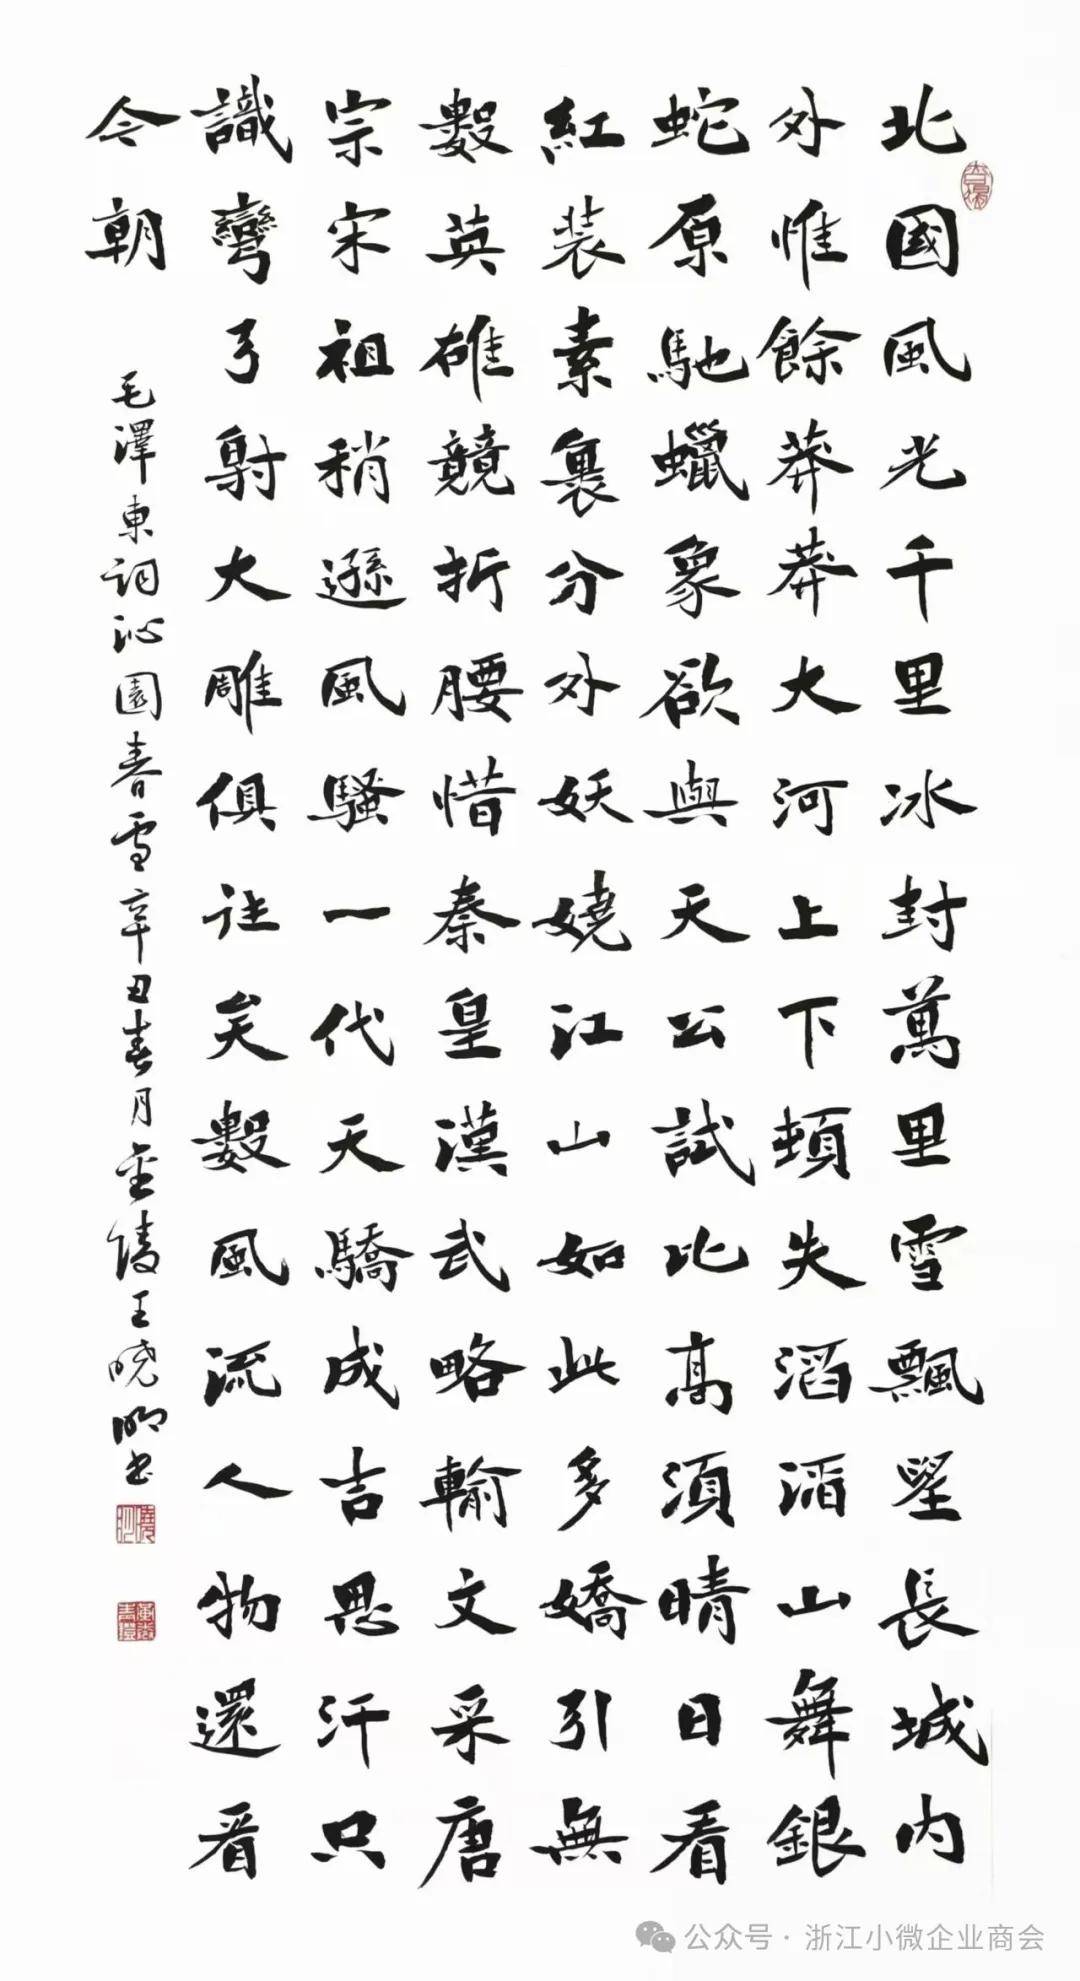 北國風光千里冰封萬里雪飄望長城内
外惟餘莽莽大河上下頓失滔滔山舞銀
蛇原馳蠟象欲與天公試比高須晴日看
紅装素裹分外妖嬈江山如此多嬌引無
數英雄競折腰惜秦皇漢武略輸文采唐
宗宋祖稍遜風騷一代天驕成吉思汗只
識彎弓射大雕俱往矣數風流人物還看
今朝
毛澤東詞沁園春雪辛丑春月金陵王曉明書
公众号 · 浙江小微企业商会